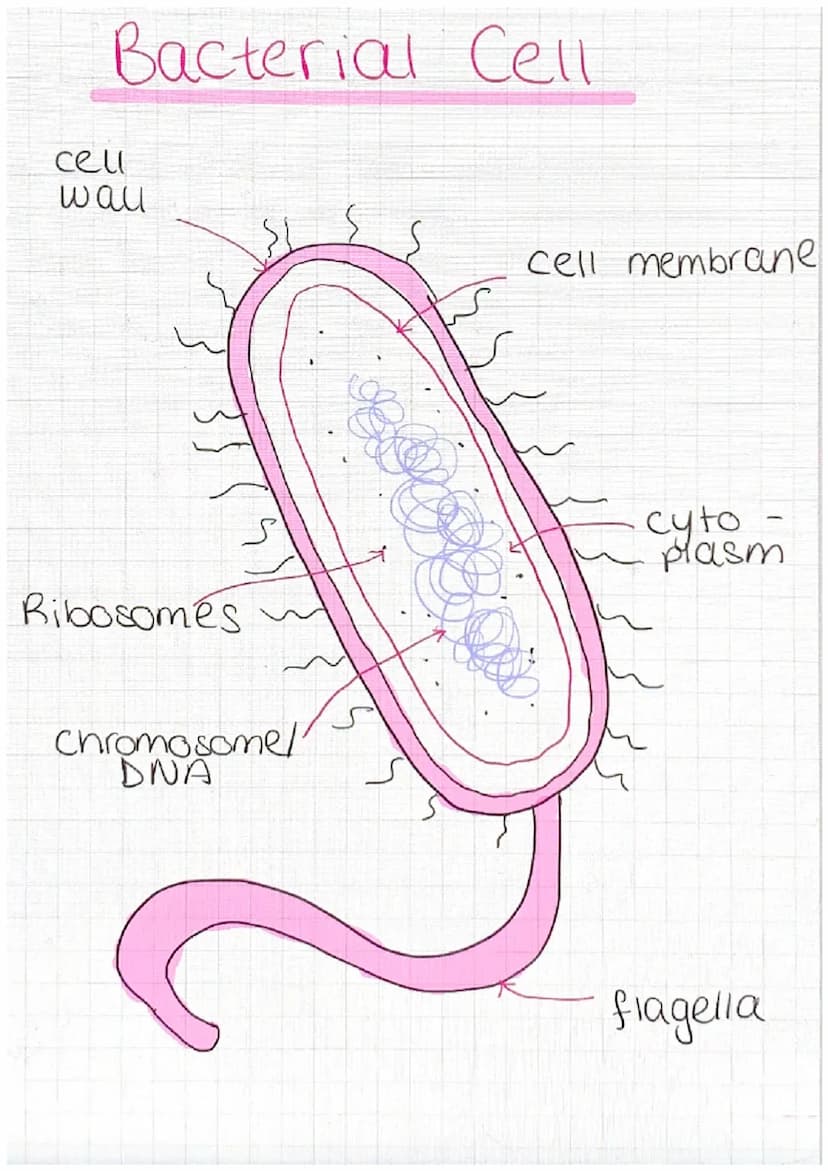 Bacterial Cell
cell
wall
cell membrane
cyto -
plasm
Ribosomes
chromosome/
DNA
flagella